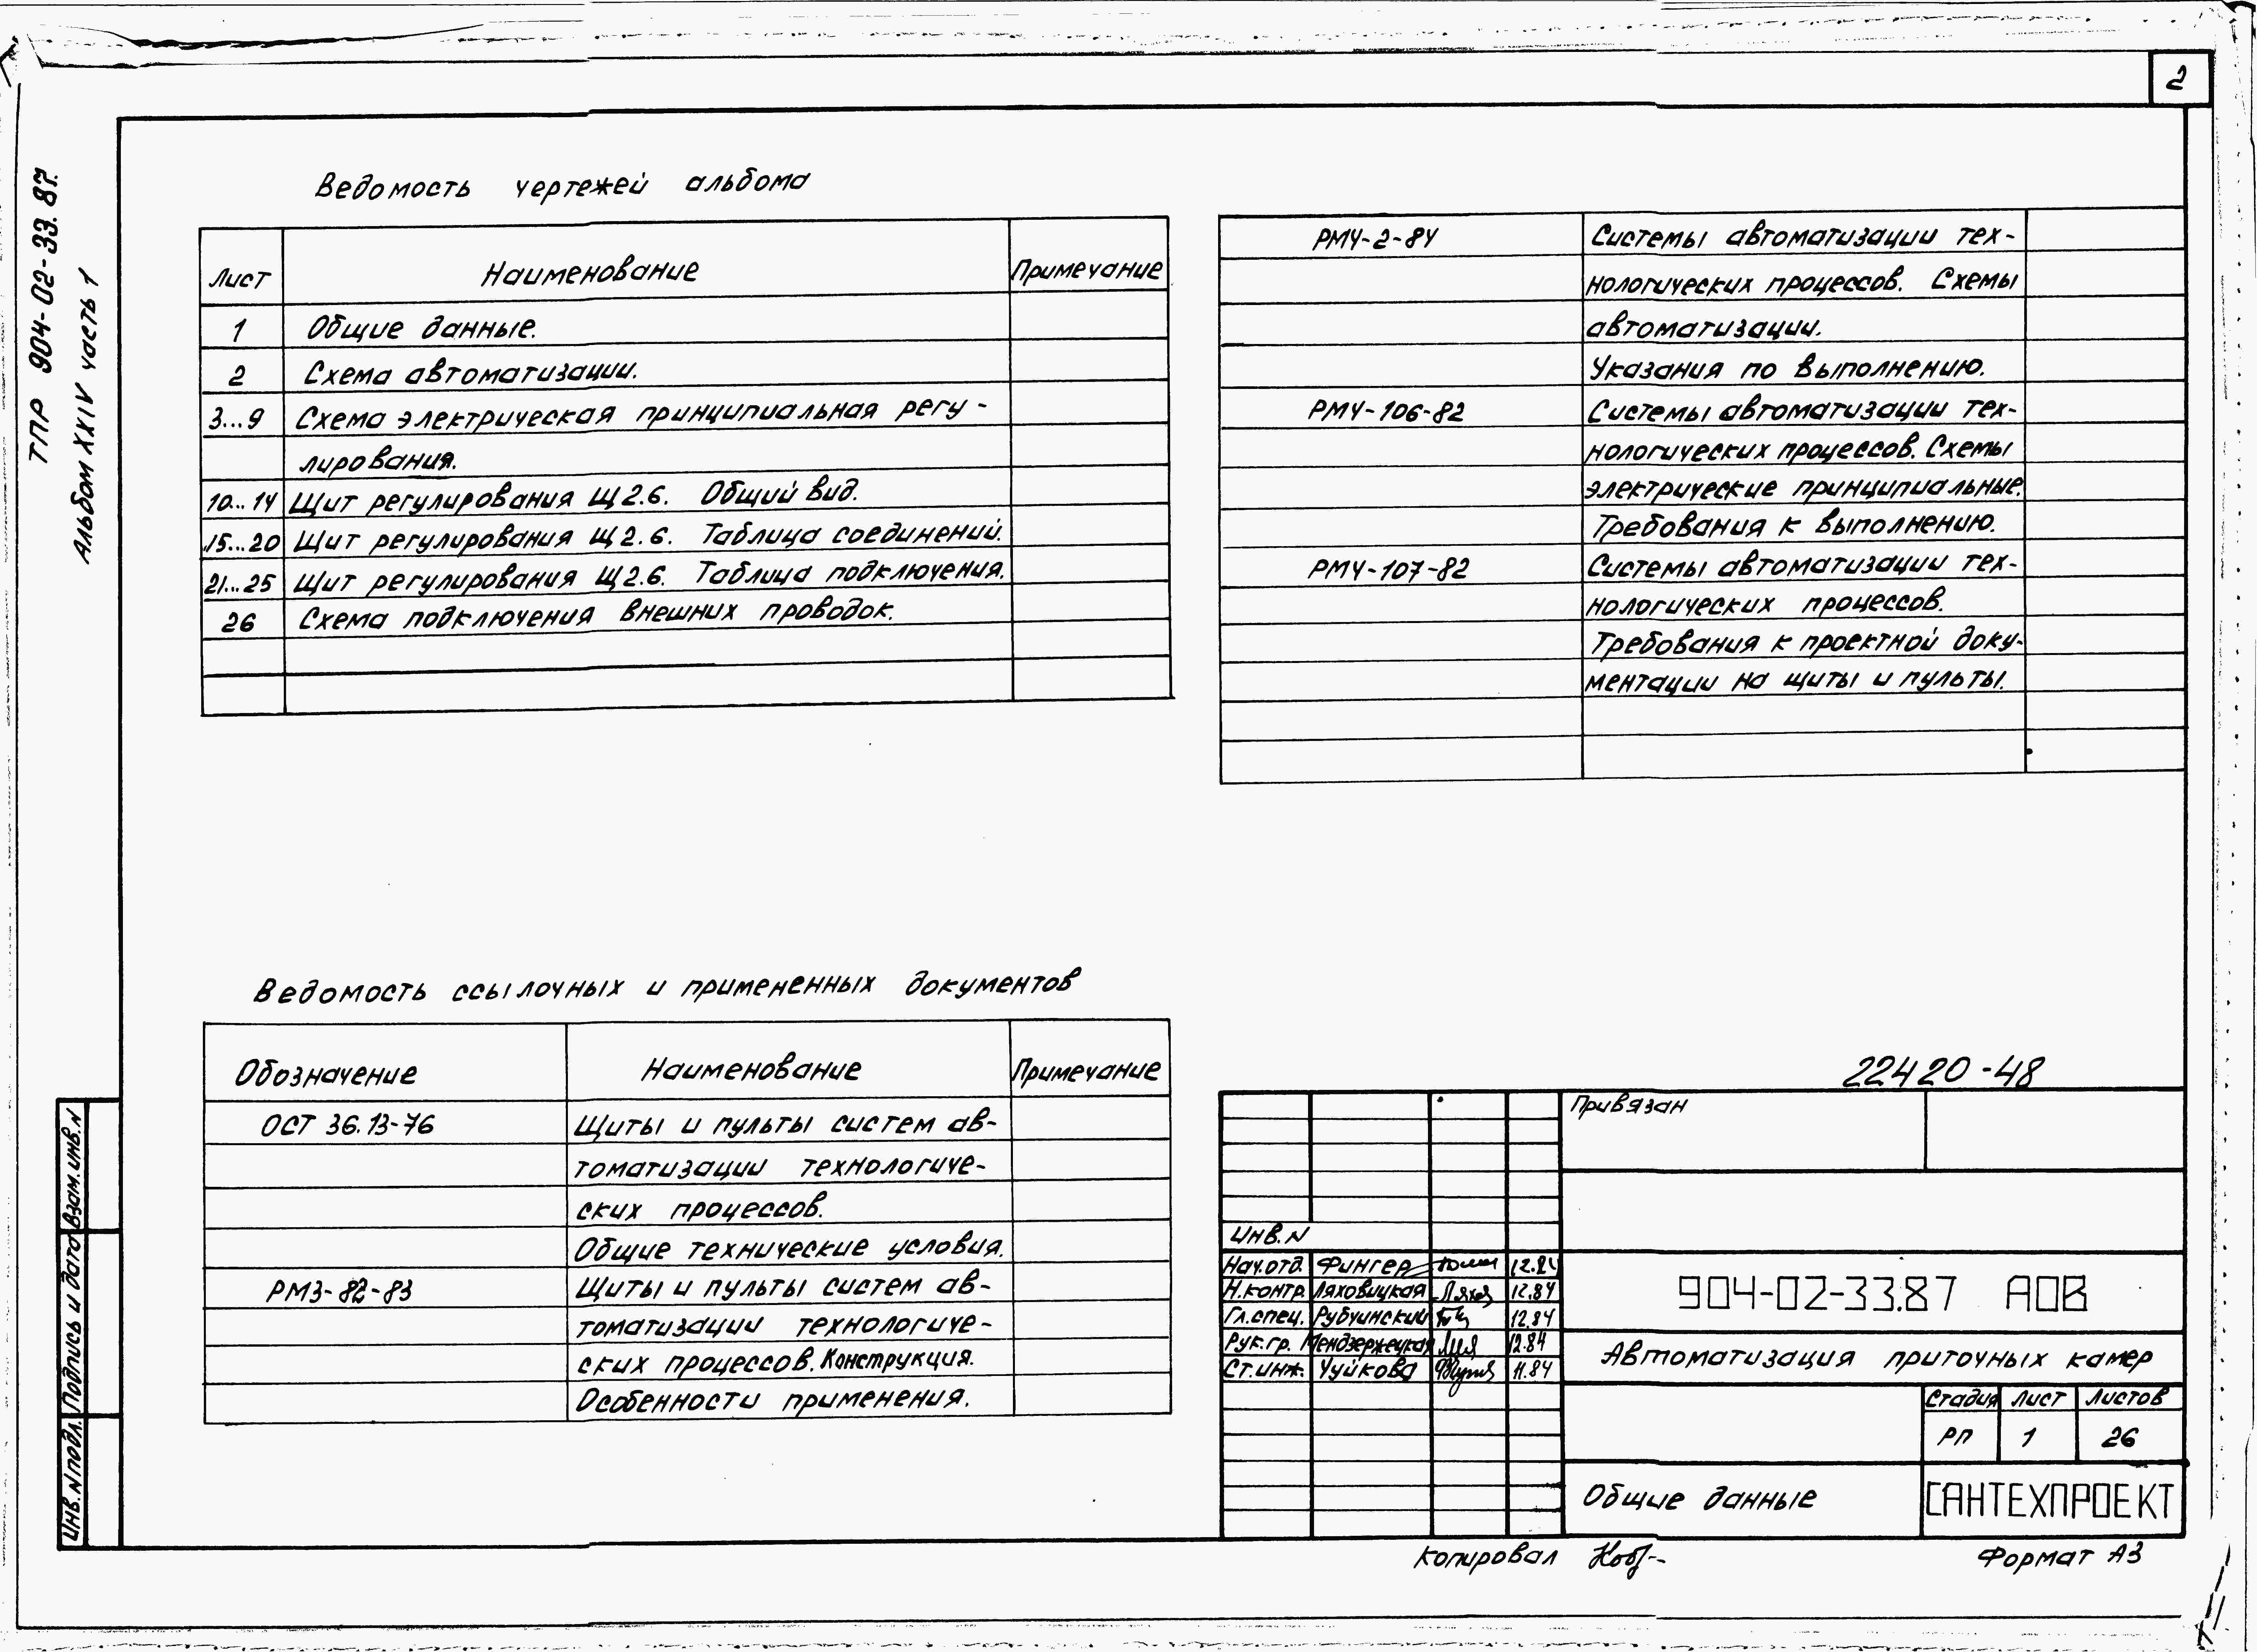 2
ТПР 904-02-33.87.
Альбом XXIV часть 1
Ведомость чертежей альбома
Лист Наименование Примечание
1 Общие данные.
2 Схема автоматизации.
3...9 Схема электрическая принципиальная регу-
лирования.
10...14 Щит регулирования Щ2.6. Общий вид.
15...20 Щит регулирования Щ2.6. Таблица соединений.
21...25 Щит регулирования Щ2.6. Таблица подключения.
26 Схема подключения внешних проводок.
Ведомость ссылочных и примененных документов
Обозначение Наименование Примечание
ОСТ 36.13-76 Щиты и пульты систем ав-
томатизации технологиче-
ских процессов.
Общие технические условия.
РМ3-82-83 Щиты и пульты систем ав-
томатизации технологиче-
ских процессов. Конструкция.
Особенности применения.
РМ4-2-84 Системы автоматизации тех-
нологических процессов. Схемы
автоматизации.
Указания по выполнению.
РМ4-106-82 Системы автоматизации тех-
нологических процессов. Схемы
электрические принципиальные.
Требования к выполнению.
РМ4-107-82 Системы автоматизации тех-
нологических процессов.
Требования к проектной доку-
ментации на щиты и пульты.
22420-48
Привязан
Инв.N
Нач.отд. Фингер 12.84
Н.контр. Ляховицкая 12.84
Гл.спец. Рубчинский 12.84
Рук.гр. Мендзержецкая 12.84
Ст.инж. Чуйкова 11.84
904-02-33.87 АОВ
Автоматизация приточных камер
Стадия Лист Листов
РП 1 26
Общие данные
САНТЕХПРОЕКТ
Взам.инв.N
Подпись и дата
Инв.N подл.
Копировал
Формат А3